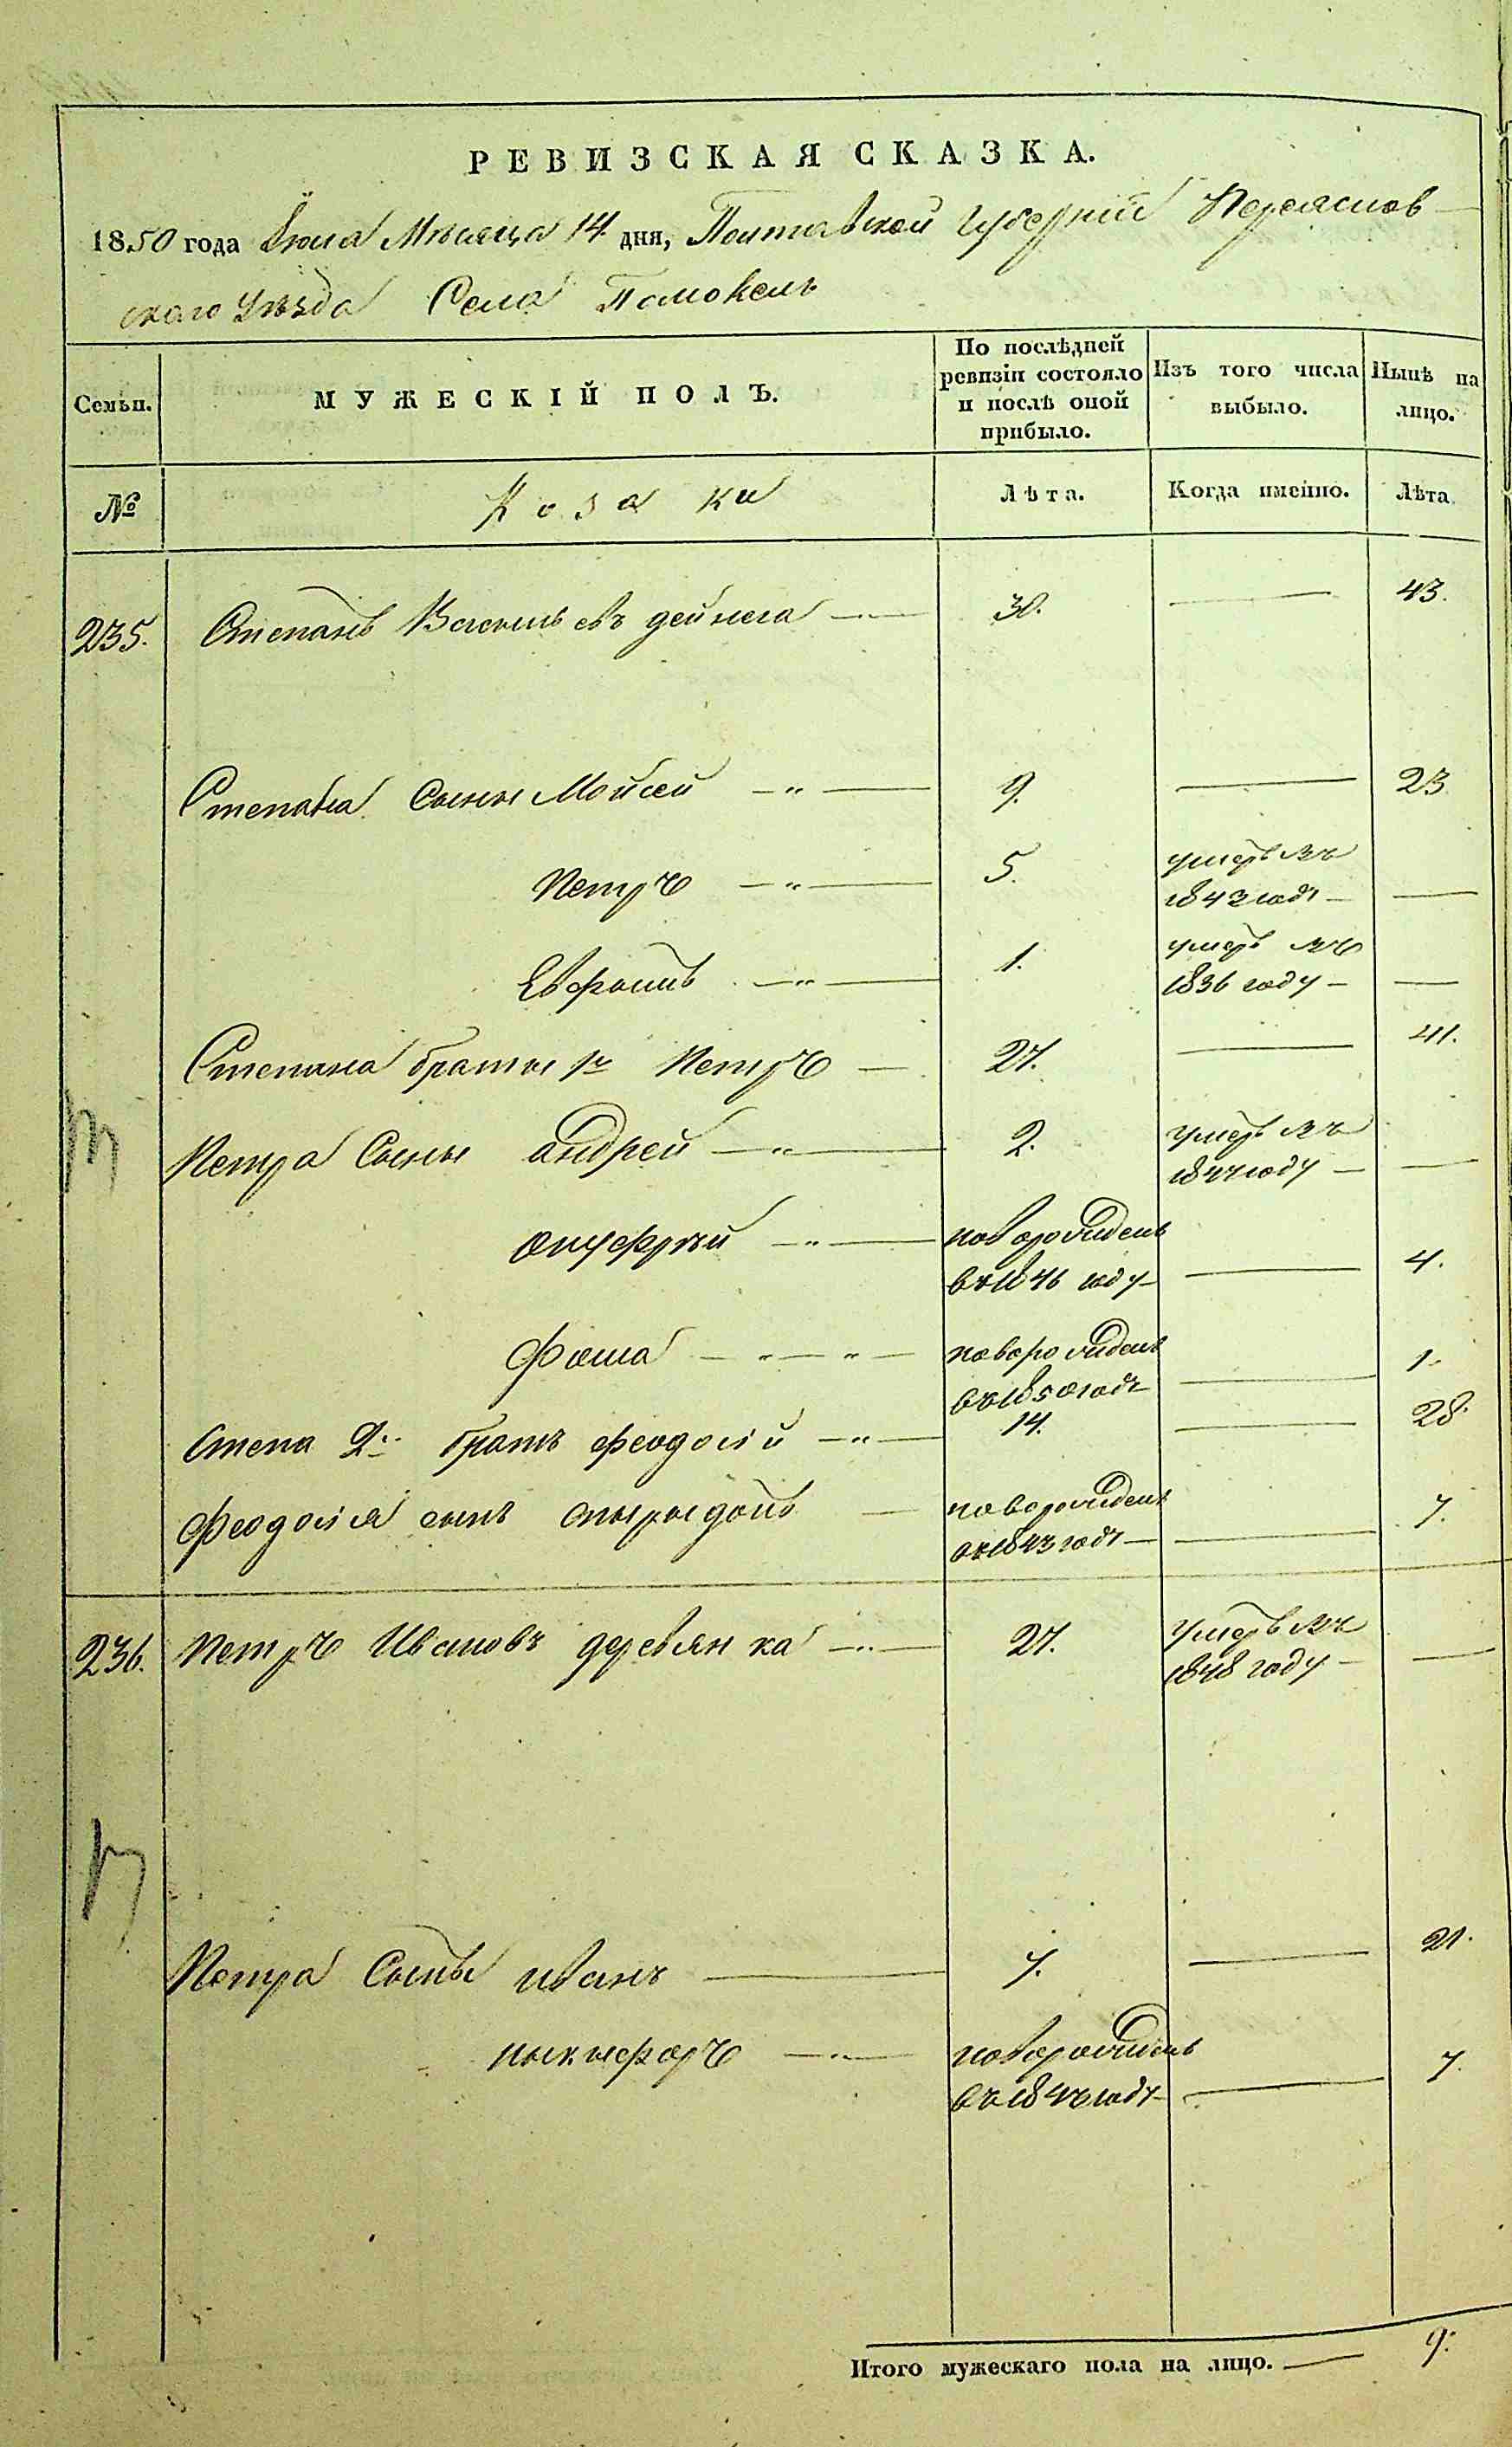 РЕВИЗСКАЯ СКАЗКА.
1850 года Июля Месяца 14 дня, Полтавской Губерніи Переяслов
скаго Уезда Села Помоклъ
Семьи. МУЖЕСКІЙ ПОЛЪ. По послѣдней ревизіи состояло и послѣ оной прибыло. Изъ того числа выбыло. Нынѣ на лицо.
№ Козаки Лѣта. Когда именно. Лѣта.
235. Степанъ Васильевъ дейнега 30. 43.
Степана Сыны Мойсей 9. 23
Петръ 5. умеръ въ
1843 годе
Евфоимъ 1. умеръ въ
1836 году
Степана братья 1й Петръ 27. 41.
Петра Сыны андрей 2. умеръ въ
1844 году
онуфрій новорожденъ 4.
въ 1846 году
Фома новорожденъ 1.
въ 1850 годе
Степа 2й братъ феодосій 14. 28.
Феодосія сынъ спырыдонъ новорожденъ 7.
въ 1843 годе
236. Петръ Ивановъ деревянка 27. Умеръ въ
1848 году
Петра Сыны иванъ 7. 21.
ныкыфоръ новорожденъ 7.
въ 1843 годе
Итого мужескаго пола на лицо. 9.